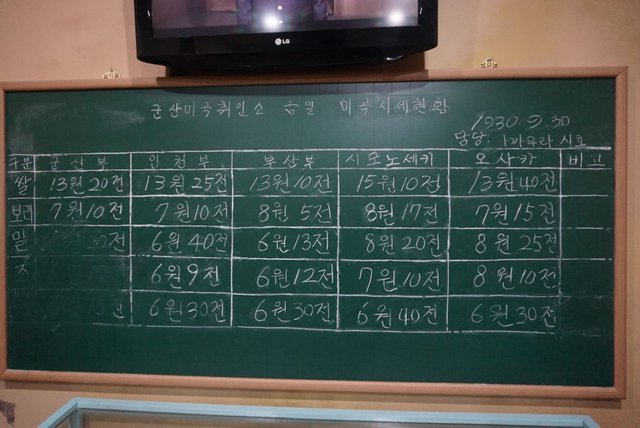 LG
군산미곡취인소 금일 미곡시세현황
1930.9.30
담당: 나까무라 시로
구분 군산부 인천부 부산부 시모노세키 오사카 비고
쌀 13원 20전 13원 25전 13원 10전 15원 10전 13원 40전
보리 7원 10전 7원 10전 8원 5전 8원 17전 7원 15전
밀 전 6원 40전 6원 13전 8원 20전 8원 25전
조 6원 9전 6원 12전 7원 10전 8원 10전
6원 30전 6원 30전 6원 40전 6원 30전